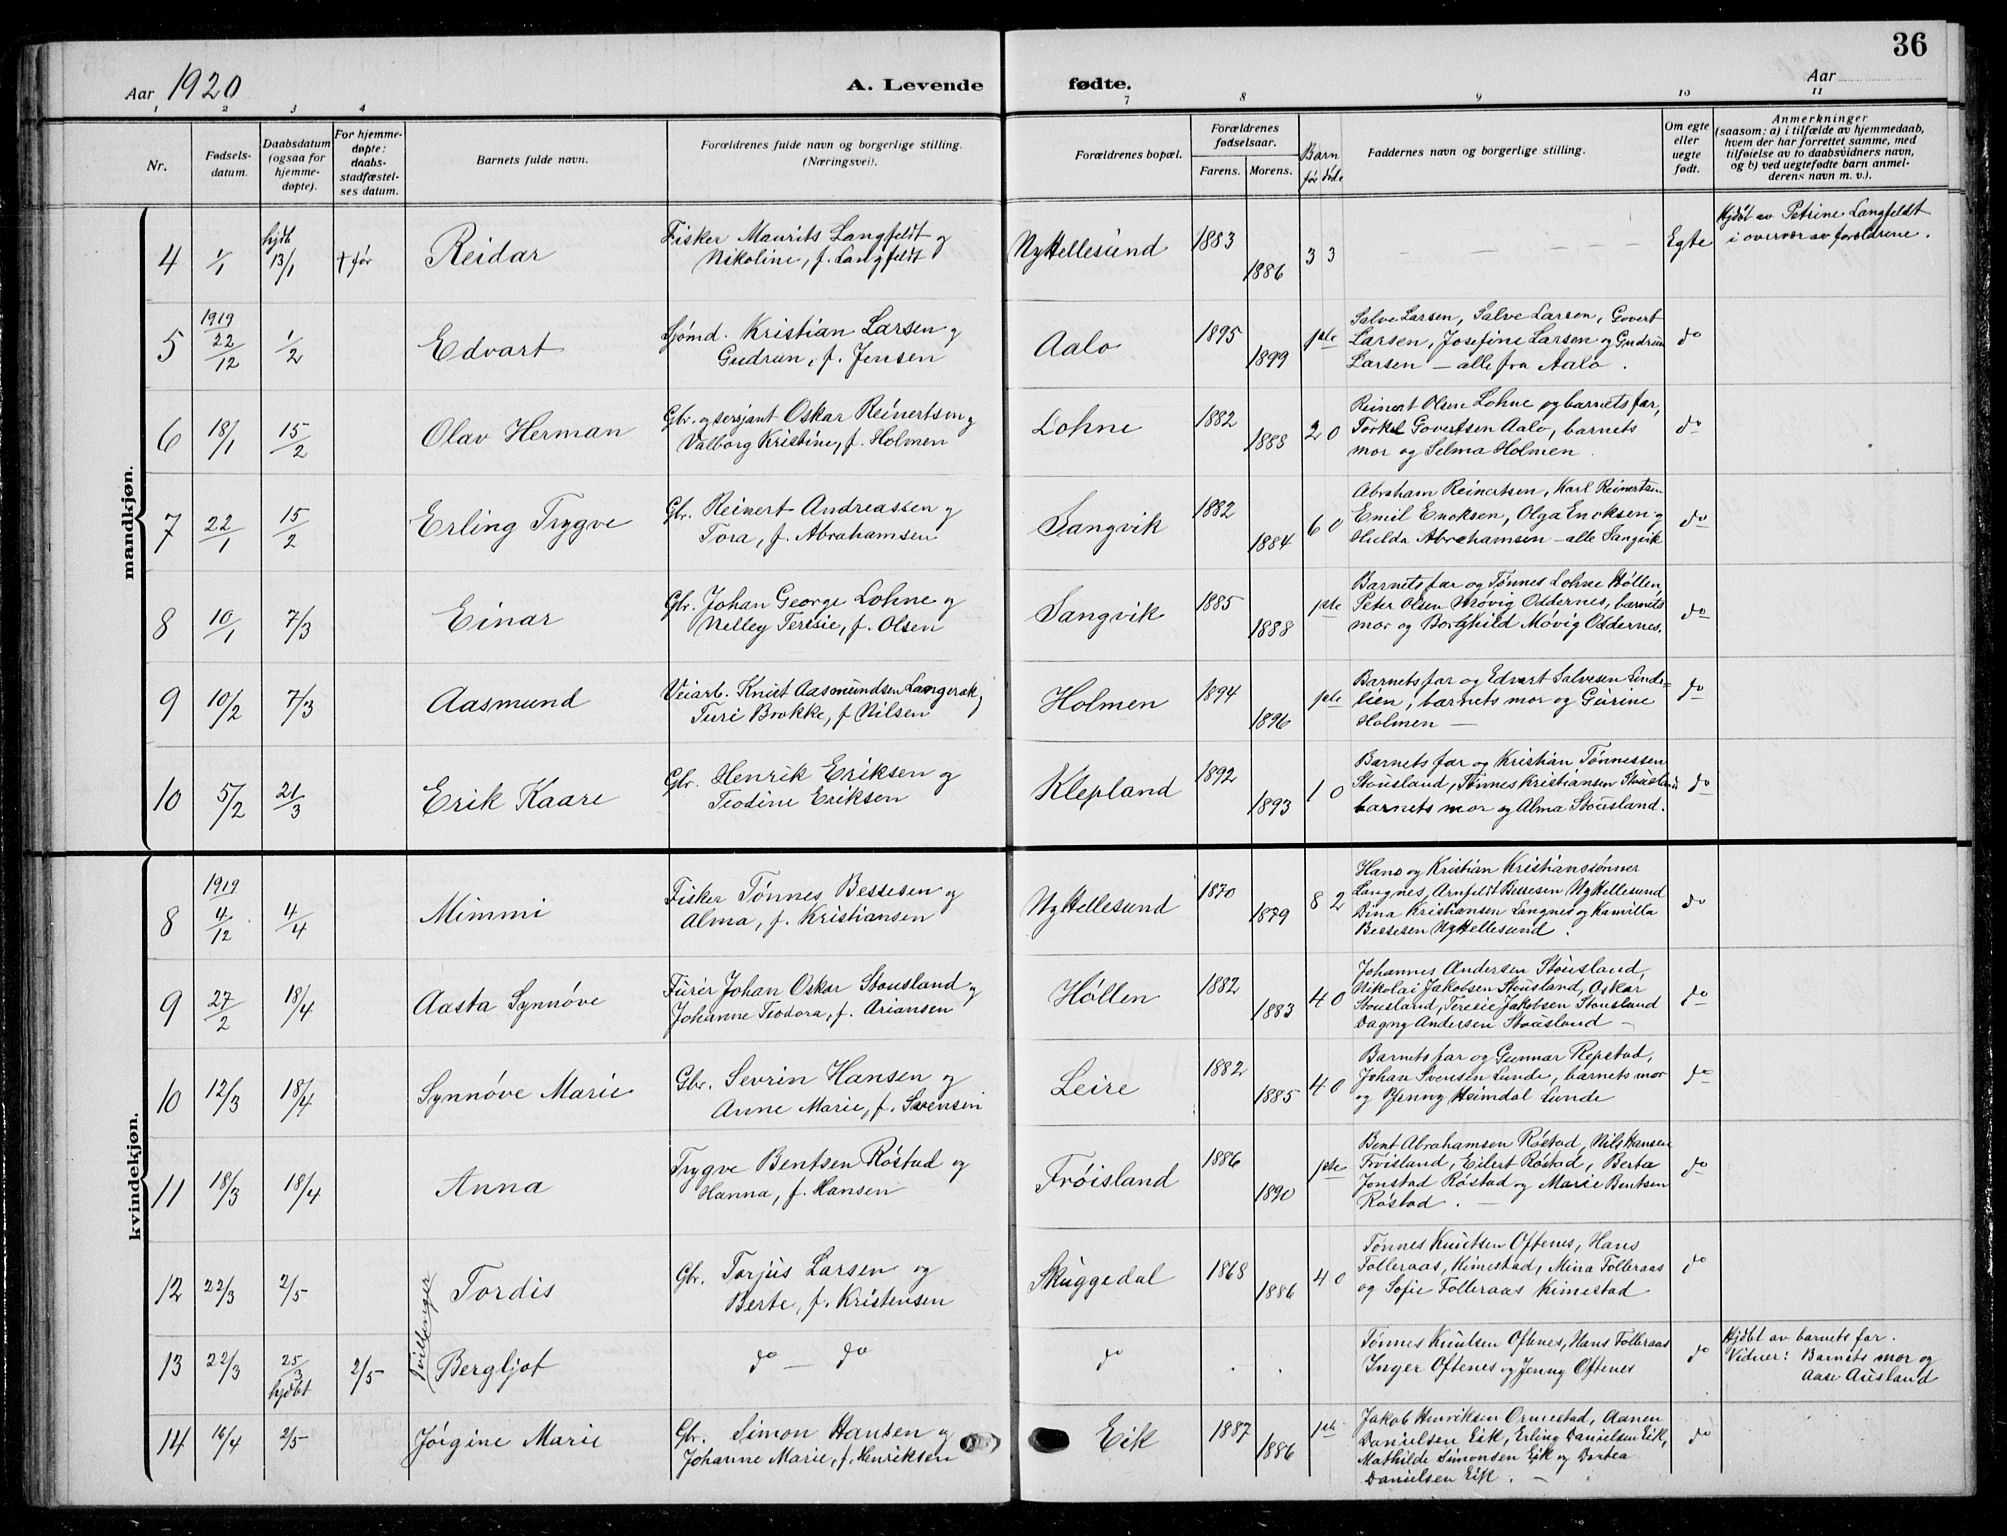 36
Aar 1920
A. Levende fødte.
Aar
1 2 3 4 7 8 9 10 11
Nr.
Fødsels-
datum.
Daabsdatum
(ogsaa for
hjemme-
døpte).
For hjemme-
døpte:
daabs-
stadfæstel-
ses datum.
Barnets fulde navn.
Forældrenes fulde navn og borgerlige stilling.
(Næringsvei).
Forældrenes bopæl.
Forældrenes
fødselsaar.
Farens. Morens.
Barn
før døde
Faddernes navn og borgerlige stilling.
Om egte
eller
uegte
født.
Anmerkninger
(saasom: a) i tilfælde av hjemmedaab,
hvem der har forrettet samme, med
tilføielse av to daabsvidners navn,
og b) ved uegtefødte barn anmel-
derens navn m. v.).
mandkjøn.
4 1/1 hjdb 13/1 † før Reidar
Fisker Maurits Langfeldt og
Nikoline, f. Langfeldt
Ny Hellesund 1883 1886 3 3 Egte
Hjdbt av Petrine Langfeldt
i overvær av forældrene.
5 1919 22/12 1/2 Edvart
Sjømd. Kristian Larsen og
Gudrun, f. Jensen
Aalo 1895 1899 1ste
Salve Larsen, Salve Larsen, Govert
Larsen, Josefine Larsen og Gudrun
Larsen – alle fra Aalo.
do
6 18/1 15/2 Olav Herman
Gbr. og sersjant Oskar Reinertsen og
Valborg Kristine, f. Holmen
Lohne 1882 1888 2 0
Reinert Olsen Lohne og barnets far,
Torkel Govertsen Aalo, barnets
mor og Selma Holmen.
do
7 22/1 15/2 Erling Trygve
Gbr. Reinert Andreassen og
Tora, f. Abrahamsen
Sangvik 1882 1884 6 0
Abraham Reinertsen, Karl Reinertsen
Emil Enoksen, Olga Enoksen og
Hulda Abrahamsen – alle Sangvik
do
8 10/1 7/3 Einar
Gbr. Johan George Lohne og
Nelley Teresie, f. Olsen
Sangvik 1885 1888 1ste
Barnets far og Tønnes Lohne Høllen,
Peter Olsen Møvig Oddernes, barnets
mor og Borghild Møvig Oddernes.
do
9 10/2 7/3 Aasmund
Veiarb. Knut Aasmundsen Langerak og
Turi Brokke, f. Nilsen
Holmen 1894 1896 1ste
Barnets far og Edvart Salvesen Linde=
lien, barnets mor og Gurine
Holmen –
do
10 5/2 21/3 Erik Kaare
Gbr. Henrik Eriksen og
Teodine Eriksen
Klepland 1892 1893 1 0
Barnets far og Kristian Tønnessen
Stousland, Tønnes Kristiansen Stousland
barnets mor og Alma Stousland.
do
kvindekjøn.
8 1919 4/12 4/4 Mimmi
Fisker Tønnes Bessesen og
Alma, f. Kristiansen
Ny Hellesund 1870 1879 8 2
Hans og Kristian Kristianssønner
Langnes, Arnfeldt Bessesen Ny Hellesund
Dina Kristiansen Langnes og Kamilla
Bessesen Ny Hellesund.
do
9 27/2 18/4 Aasta Synnøve
Furer Johan Oskar Stousland og
Johanne Teodora, f. Ariansen
Høllen 1882 1883 4 0
Johannes Andersen Stousland,
Nikolai Jakobsen Stousland, Oskar
Stousland, Teresie Jakobsen Stousland
Dagny Andersen Stousland –
do
10 12/3 18/4 Synnøve Marie
Gbr. Sevrin Hansen og
Anne Marie, f. Svensen
Leire 1882 1885 4 0
Barnets far og Gunnar Repstad,
Johan Svensen Lunde, barnets mor
og Jenny Heimdal Lunde
do
11 18/3 18/4 Anna
Trygve Bentsen Røstad og
Hanna, f. Hansen
Frøisland 1886 1890 1ste
Bent Abrahamsen Røstad, Nils Hansen
Frøisland, Eilert Røstad, Berta
Jonstad Røstad og Marie Bentsen
Røstad. –
do
12 22/3 2/5 Tvillinger Tordis
Gbr. Torjus Larsen og
Berte, f. Kristensen
Skuggedal 1868 1886 4 0
Tønnes Knutsen Oftenes, Hans
Tolleraas, Kimestad, Mina Tolleraas
og Sofie Tolleraas Kimestad
do
13 22/3 25/3 hjdbt 2/5 Bergljot
do – do
do
Tønnes Knutsen Oftenes, Hans Tolleraas
Inger Oftenes og Jenny Oftenes
do
Hjdbt av barnets far.
Vidner: Barnets mor og
Aase Ausland
14 16/4 2/5 Jørgine Marie
Gbr. Simon Hansen og
Johanne Marie, f. Henriksen
Eik 1887 1886 1ste
Jakob Henriksen Ormestad, Aanen
Danielsen Eik, Erling Danielsen Eik,
Mathilde Simonsen Eik og Dortea
Danielsen Eik. –
do